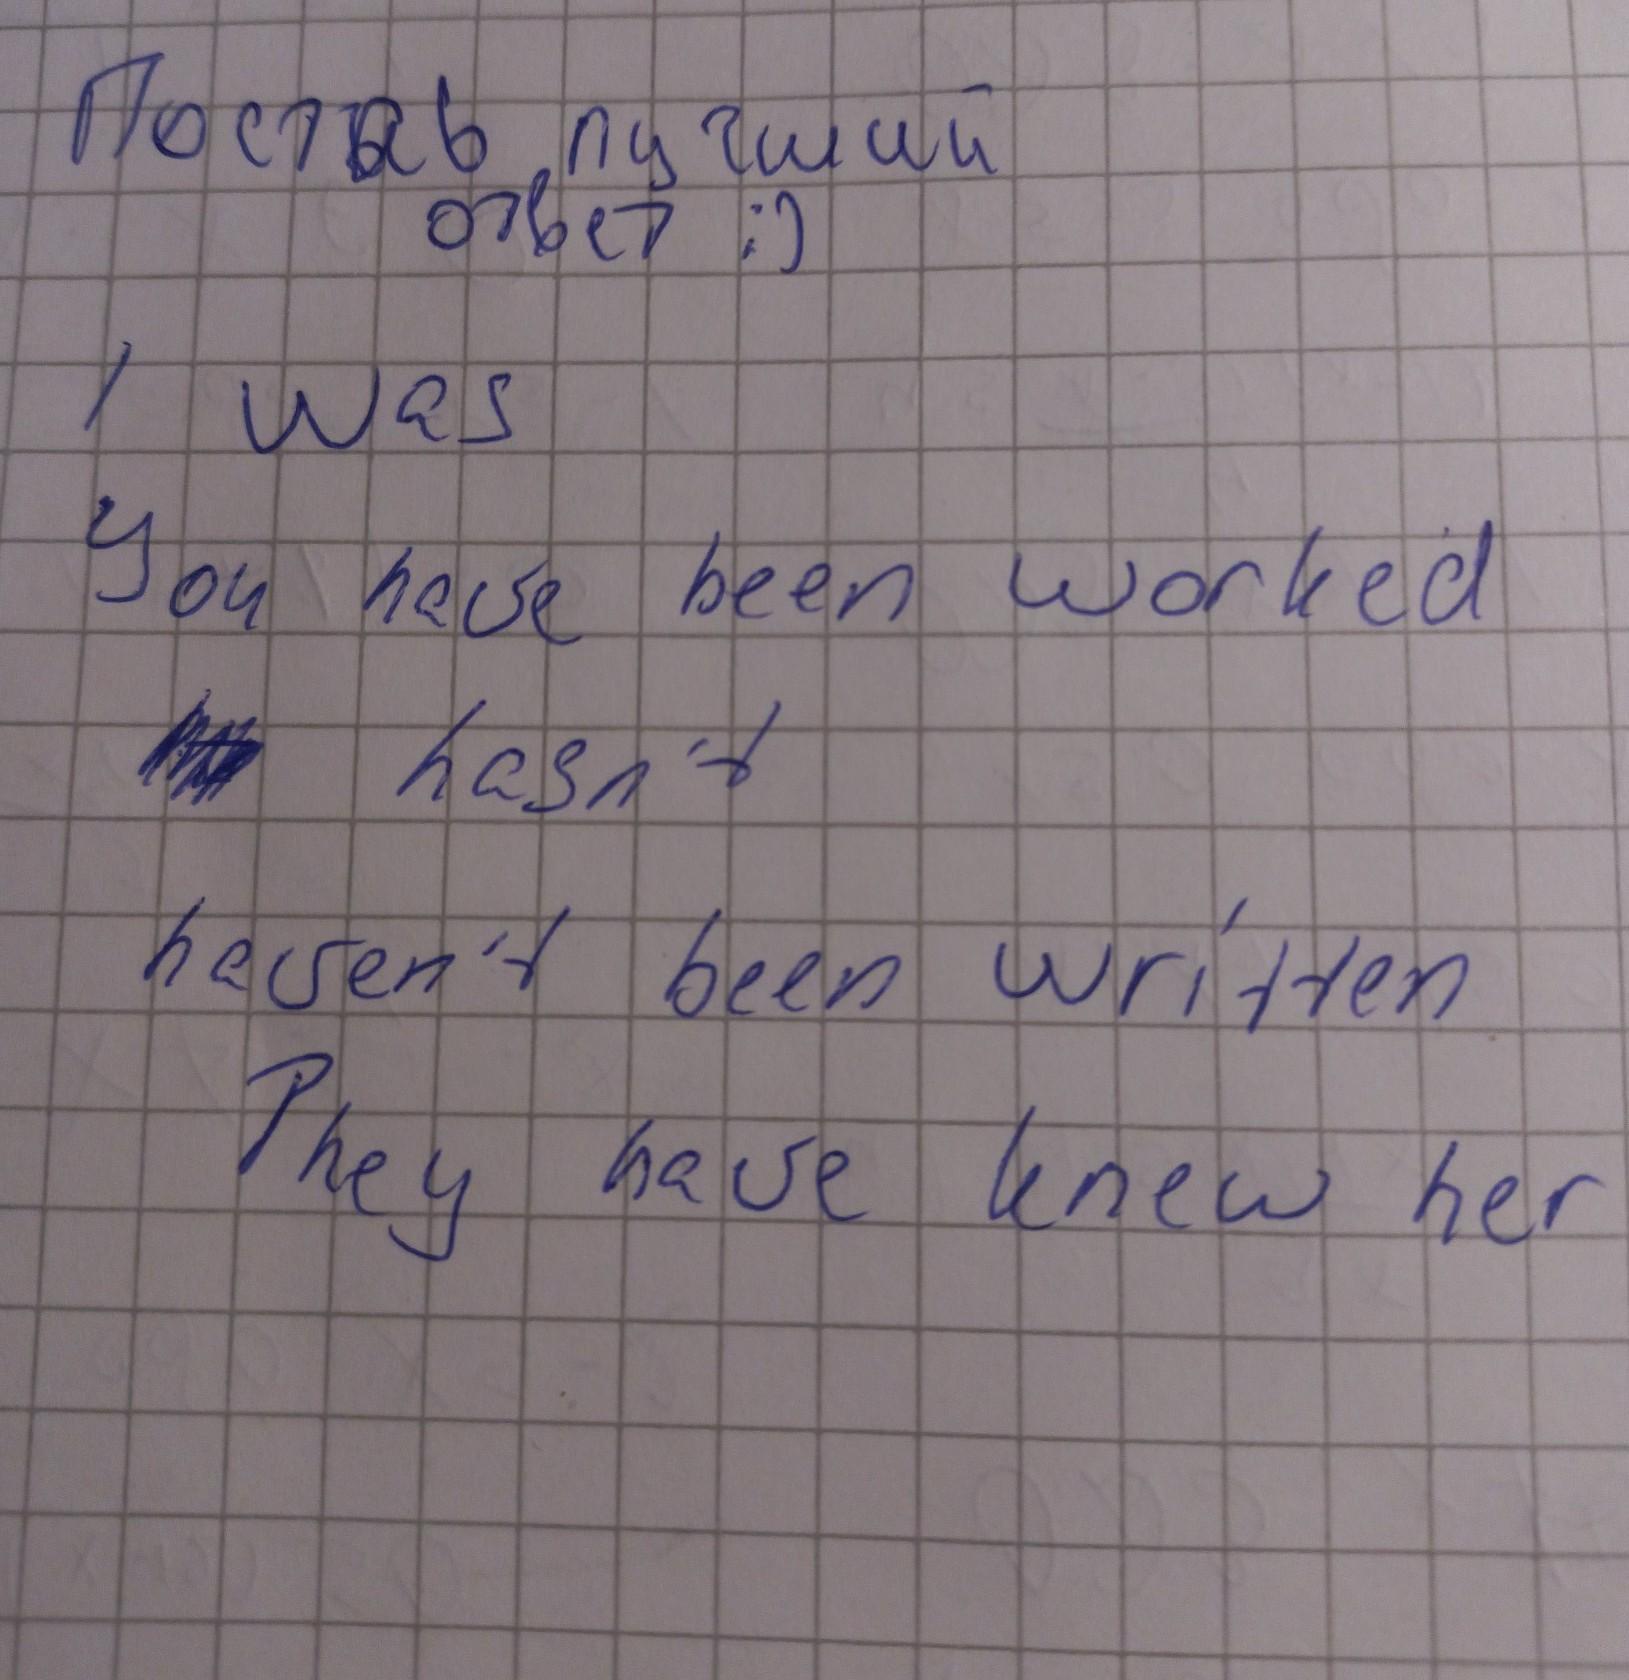 Поставь лучший
ответ :)
I was
You have been worked
hasn't
haven't been written
They have knew her